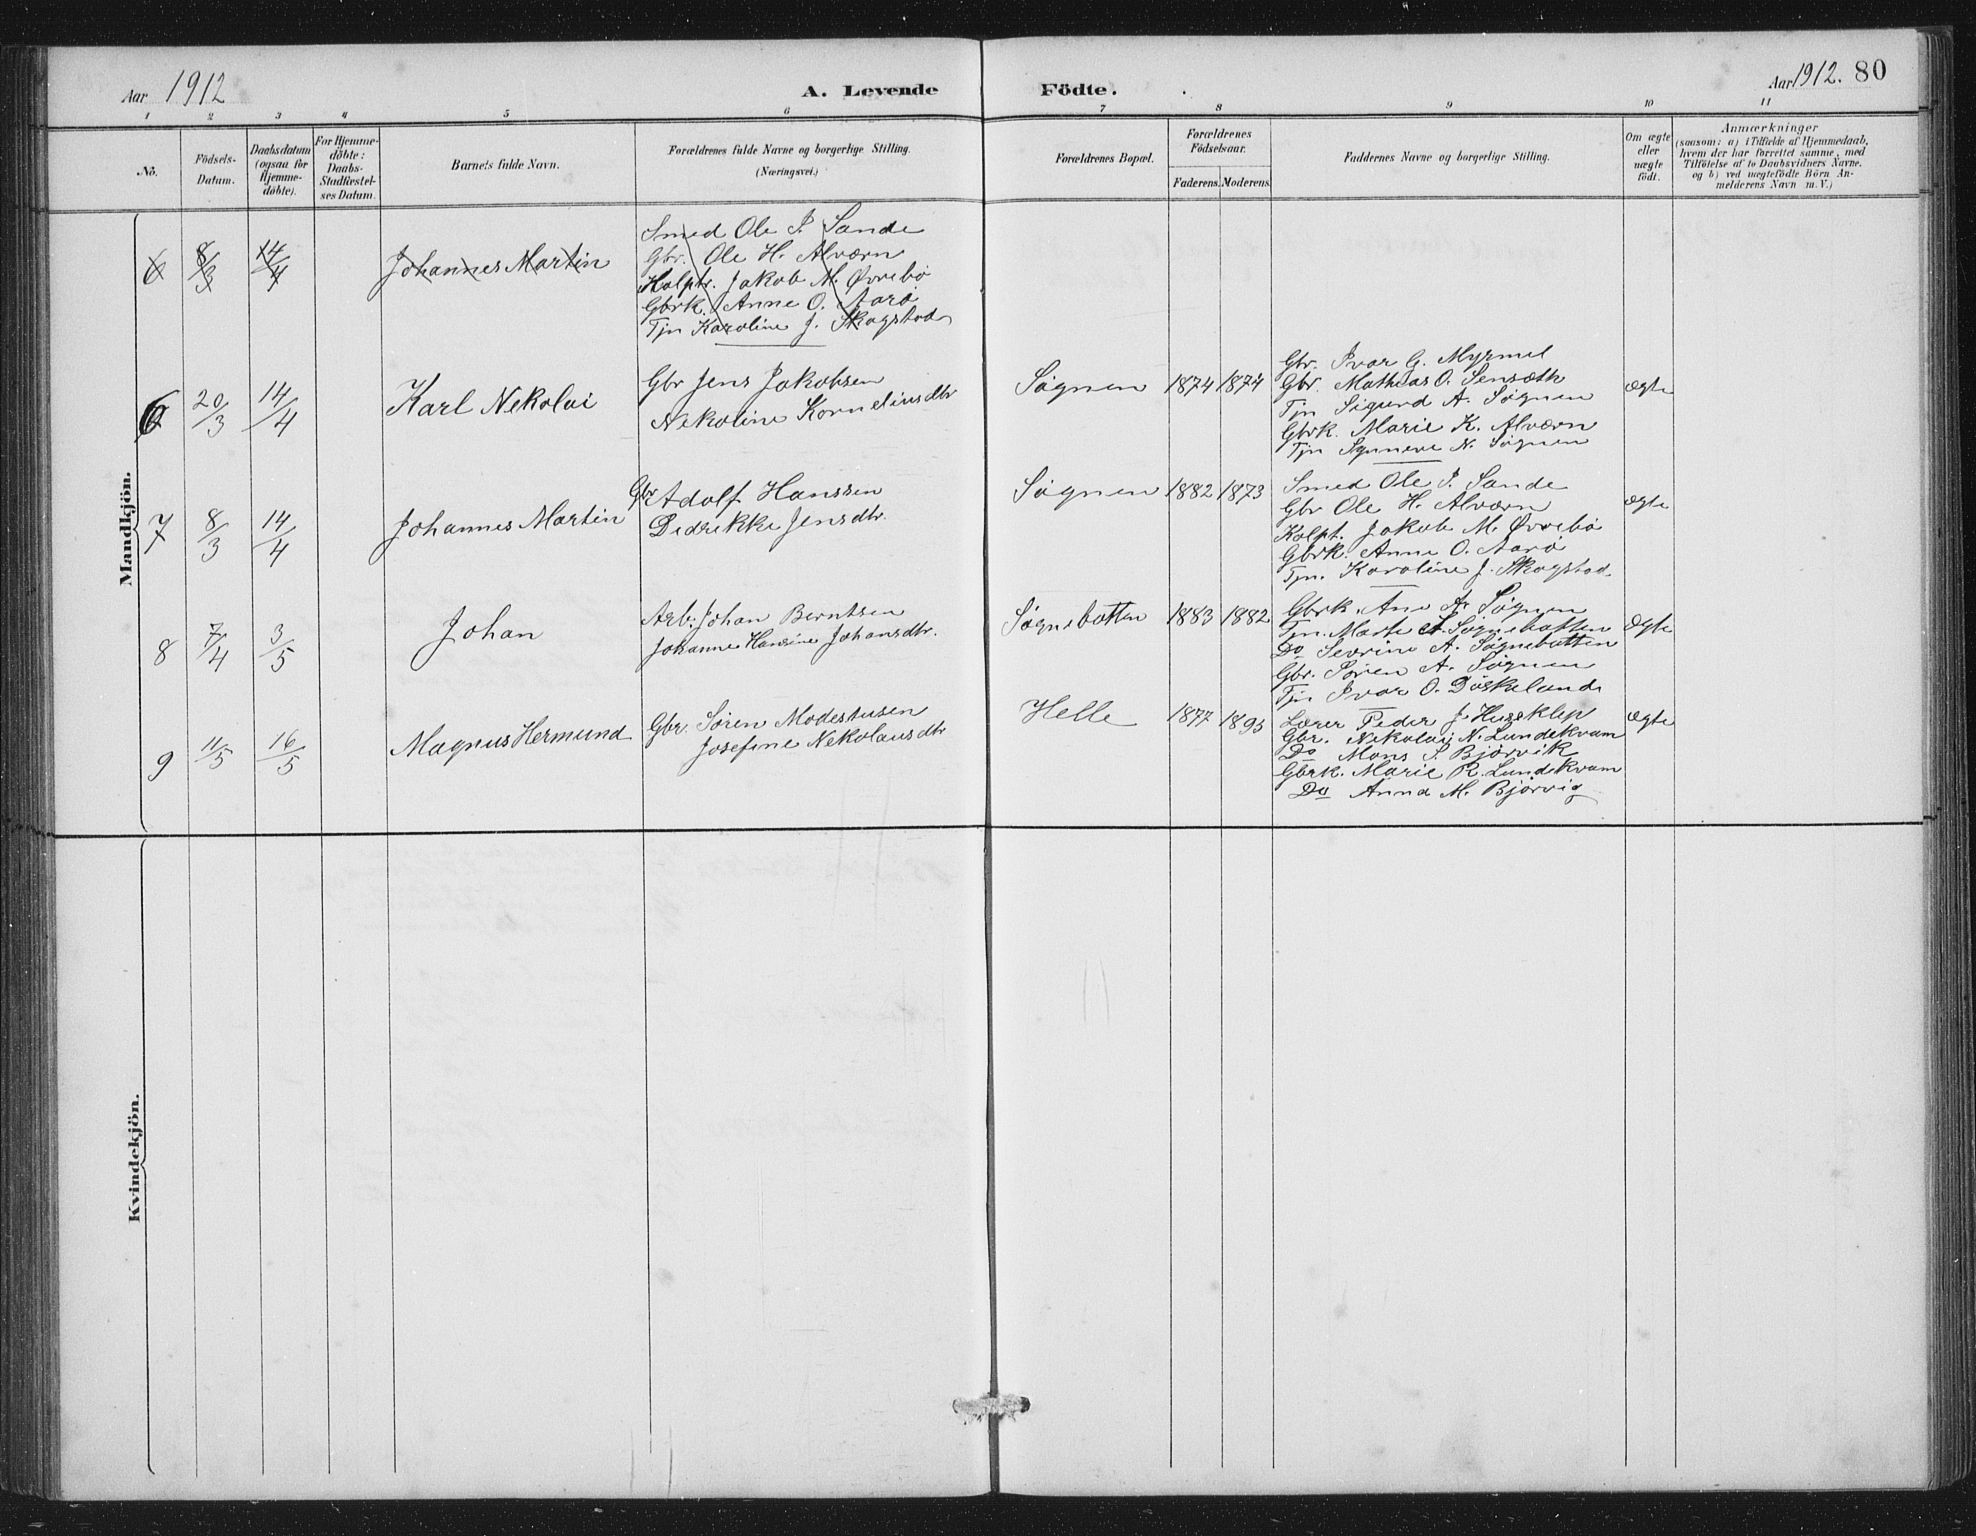 Aar 1912
A. Levende
Födte.
Aar 1912. 80
1 2 3 4 5 6 7 8 9 10 11
No.
Födsels-
Datum.
Daabsdatum
(ogsaa for
Hjemme-
döbte).
For Hjemme-
döbte:
Daabs-
Stadfæstel-
ses Datum.
Barnets fulde Navn.
Forældrenes fulde Navne og borgerlige Stilling.
(Næringsvei.)
Forældrenes Bopæl.
Forældrenes
Födselsaar.
Faderens. Moderens.
Faddernes Navne og borgerlige Stilling.
Om ægte
eller
uægte
födt.
Anmærkninger
(saasom: a) i Tilfælde af Hjemmedaab,
hvem der har forrettet samme, med
Tilföielse af to Daabsvidners Navne.
og b) ved uægtefödte Börn An-
melderens Navn m. V.)
Mandkjön.
6 8/3 14/4 Johannes Martin
Smed Ole P. Sande
Gbr. Ole H. Alværn
Kolptr. Jakob M. Øvrebø
Gbrk. Anne O. Aarø
Tjn Karoline J. Skogstad
6 20/3 14/4 Karl Nekolai
Gbr Jens Jakobsen
Nekoline Korneliusdtr
Søgnen 1874 1874
Gbr. Ivar G. Myrmel
Gbr. Mathias O. Sensæth
Tjn Sigurd A. Søgnen
Gbrk. Marie K. Alværn
Tjn Synneve N. Søgnen
ægte
7 8/3 14/4 Johannes Martin
Gbr Adolf Hanssen
Didrikke Jensdtr.
Søgnen 1882 1873
Smed Ole P. Sande
Gbr Ole H. Alværn
Kolpt. Jakob M. Øvrebø
Gbrk. Anne O. Aarø
Tjn. Karoline J. Skogstad
ægte
8 7/4 3/5 Johan
Arb: Johan Berntsen
Johanne Hansine Johansdtr.
Søgnebotten 1883 1882
Gbrk. Ane A. Søgnen
Tjn. Marte A. Søgnebotten
Do Severine A. Søgnebotten
Gbr. Søren A. Søgnen
Tjn Ivar O. Døskeland
Ægte
9 11/5 16/5 Magnus Hermund
Gbr. Søren Modestusen
Josefine Nekolausdtr
Helle 1877 1893
Lærer Peder J. Hussklep
Gbr. Nekolai N. Lundekvam
Do Mons S. Bjørvik
Gbrk. Marie R. Lundekvam
Do Anna M. Bjørvig
Ægte
Kvindekjön.